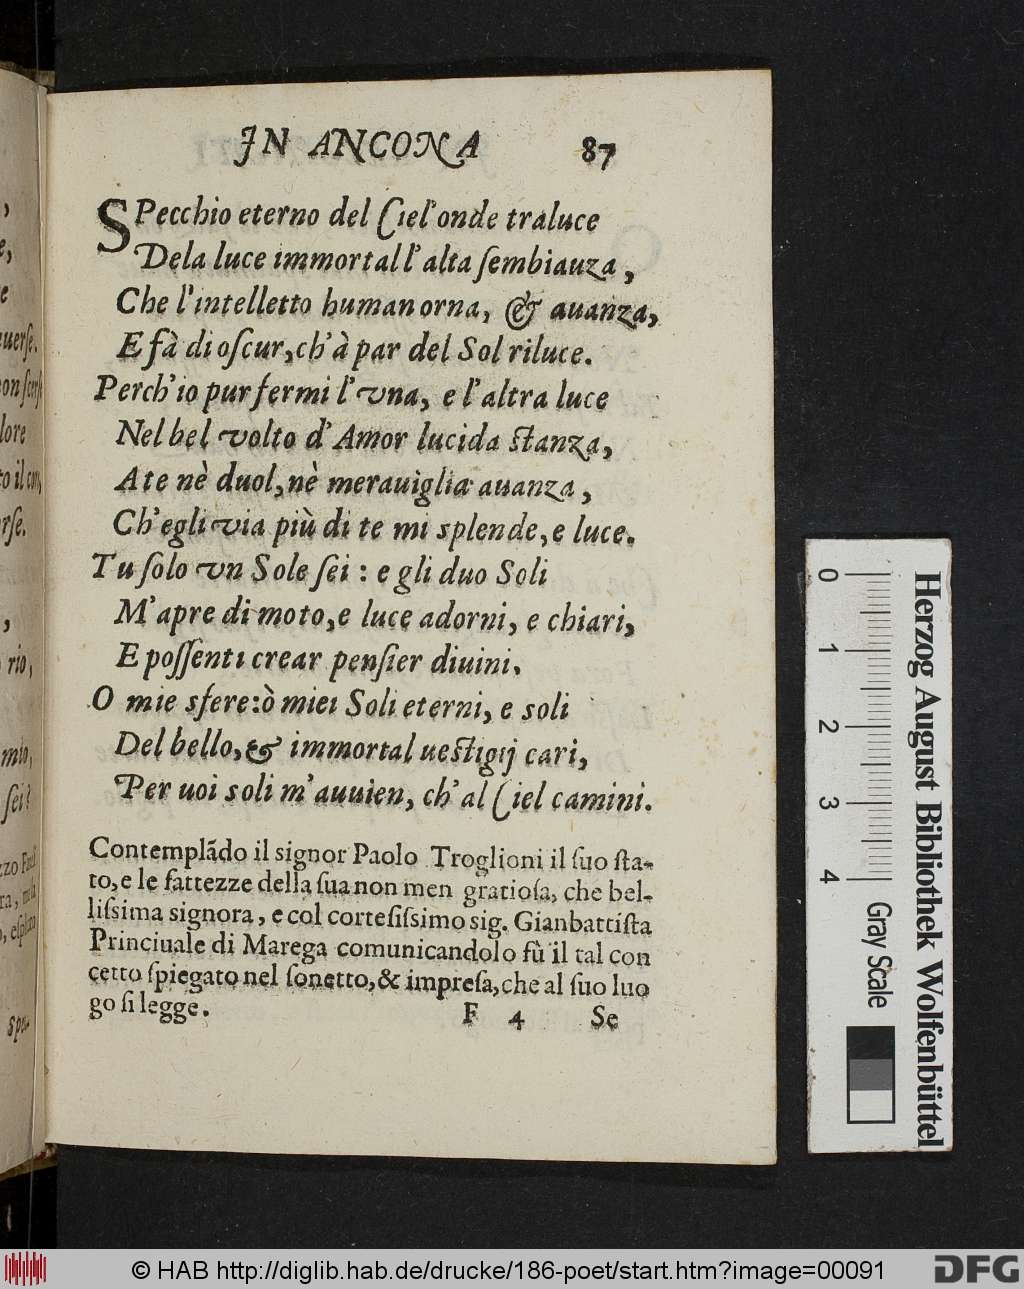 IN ANCONA 87
SPecchio eterno del Ciel'onde traluce
Dela luce immortall'alta ſembiauza,
Che l'intelletto human orna, & auanza,
E fà di oſcur, ch'à par del Sol riluce.
Perch'io pur fermi l'vna, e l'altra luce
Nel bel volto d'Amor lucida ſtanza,
A te nè duol, nè merauiglia auanza,
Ch'egli via più di te mi splende, e luce.
Tu ſolo vn Sole ſei : e gli duo Soli
M'apre di moto, e luce adorni, e chiari,
E poſſenti crear penſier diuini.
O mie sfere: ò miei Soli eterni, e soli
Del bello, & immortal ueſtigij cari,
Per uoi soli m'auuien, ch'al Ciel camini.
Contemplãdo il signor Paolo Troglioni il ſuo ſta-
to, e le fattezze della ſua non men gratioſa, che bel-
liſsima signora, e col corteſiſsimo sig. Gianbattiſta
Princiuale di Marega comunicandolo fù il tal con
cetto ſpiegato nel ſonetto, & impreſa, che al ſuo luo
go ſi legge.
F 4 Se
uerſe.
lore
rſe.
rio,
mio,
ſei?
spe-
0 1 2 3 4
Herzog August Bibliothek Wolfenbüttel
Gray Scale
© HAB http://diglib.hab.de/drucke/186-poet/start.htm?image=00091
DFG